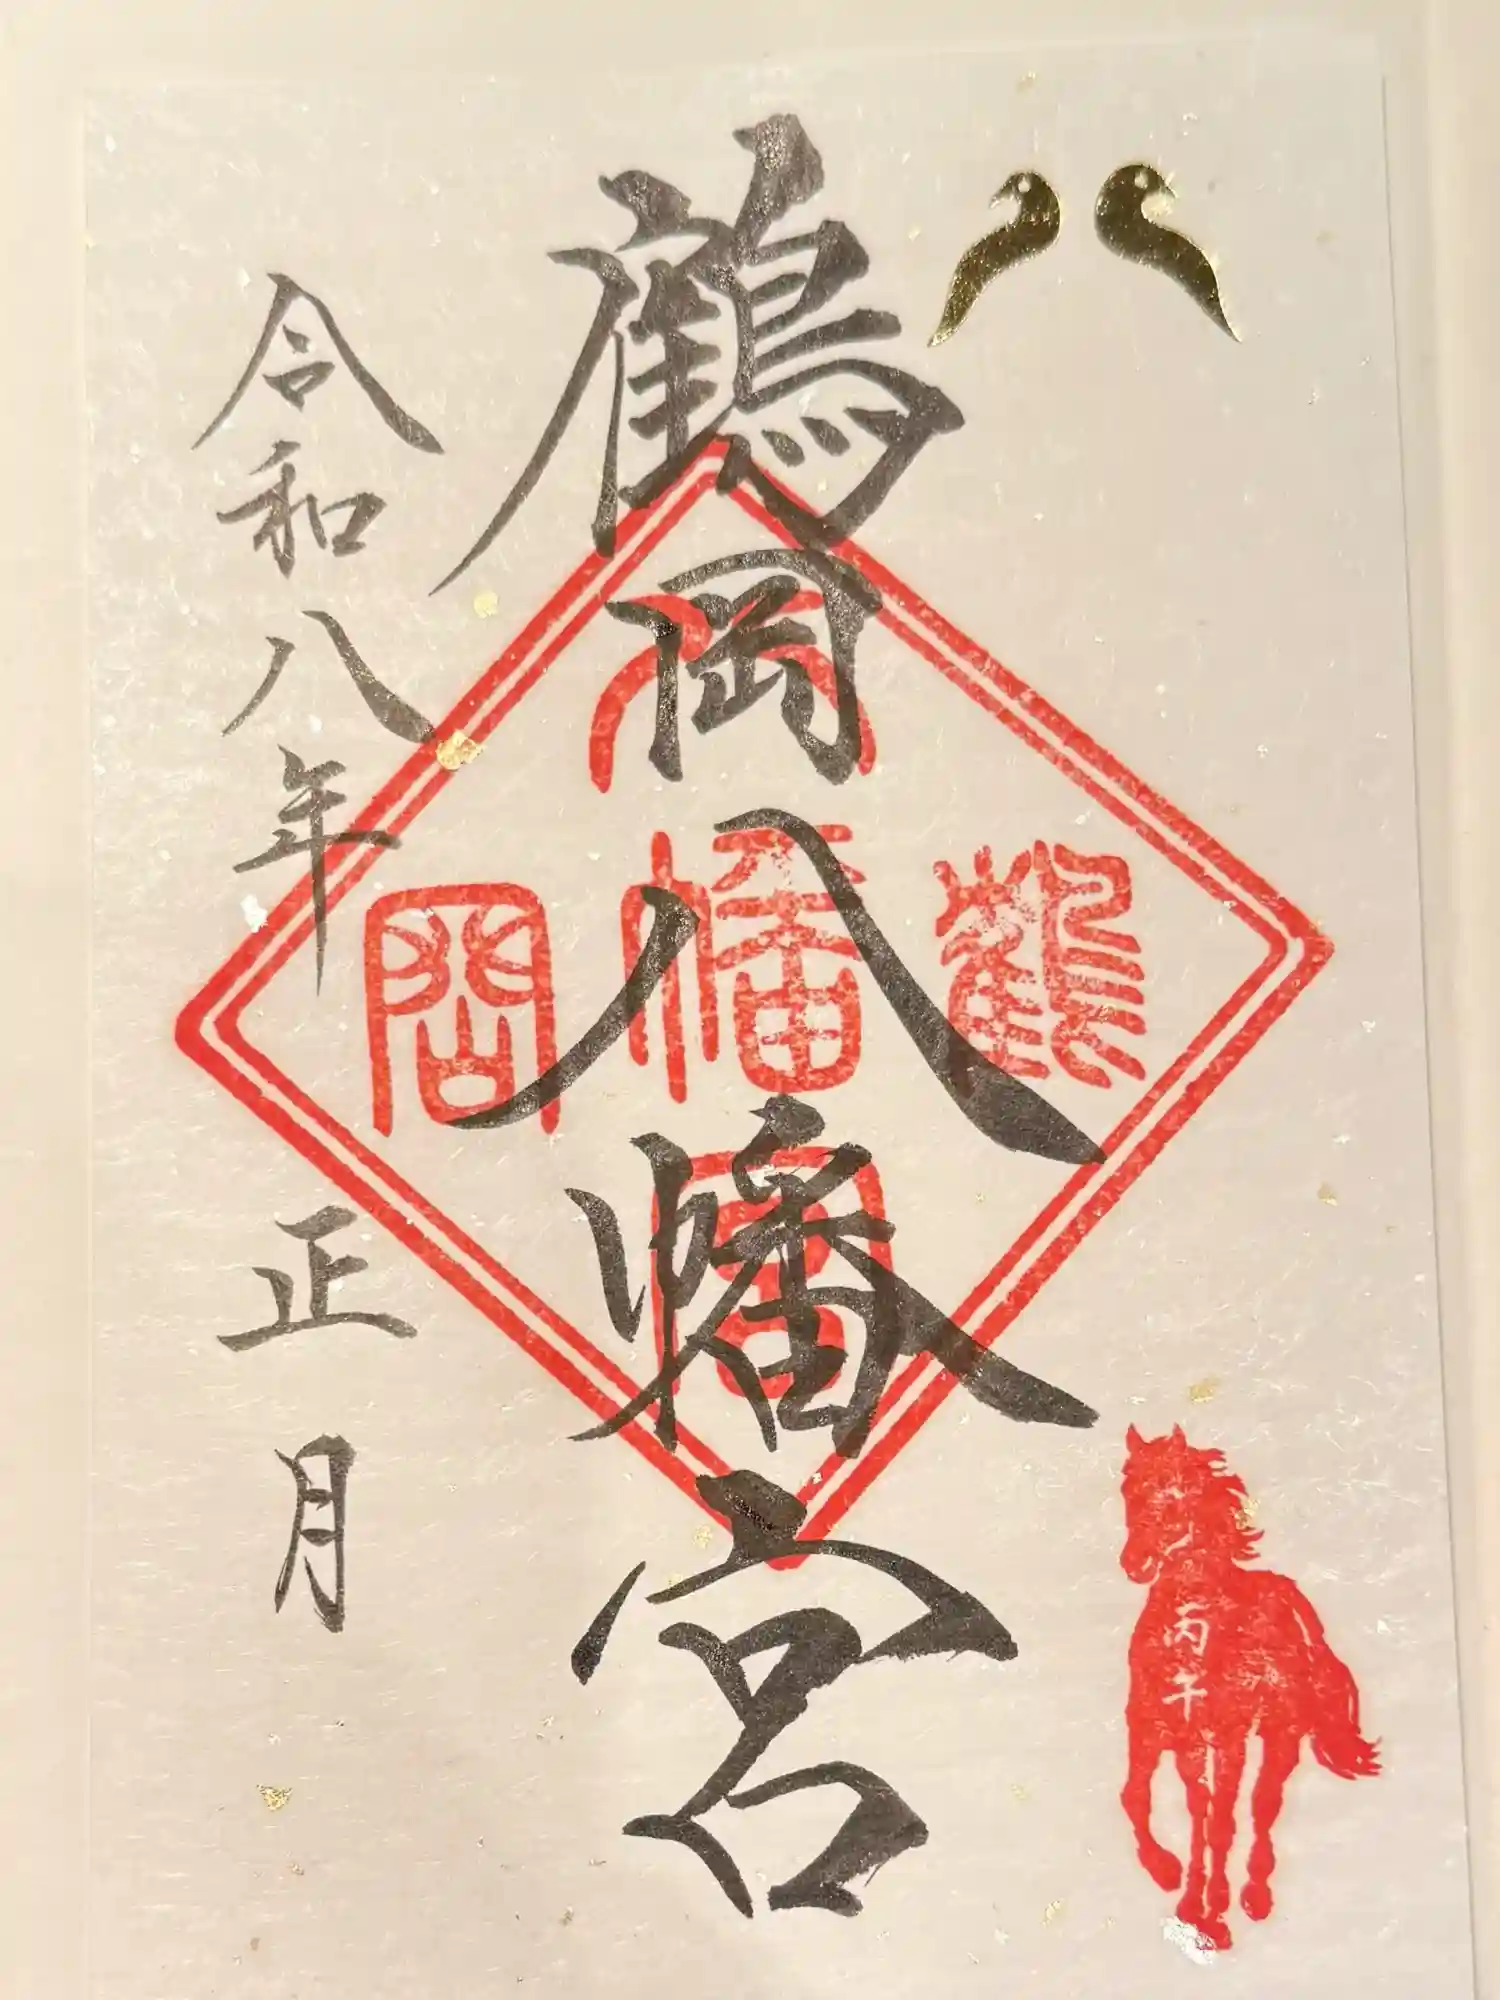 鶴岡八幡宮
令和八年 正月
鶴
八
幡
宮
岡
丙午